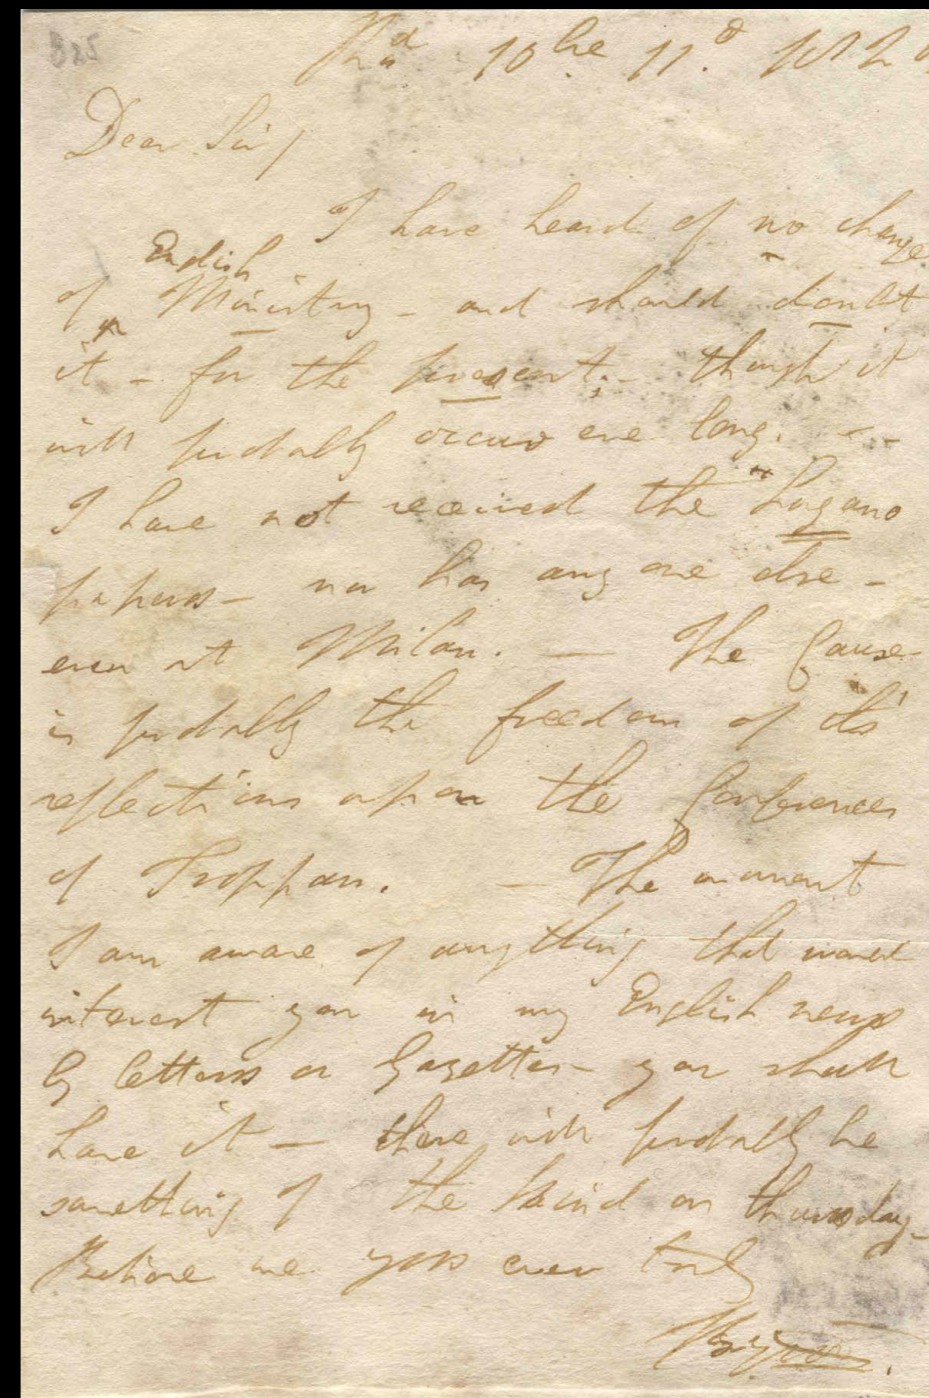 Ra. 10bre 11.o 1820
Dear Sir,
I have heard of no change
of English Ministry - and should doubt
it - for the present; - though it
will probably occur ere long. - -
I have not received the "Lugano
papers - nor has any one else -
even at Milan. — The Cause
is probably the freedom of it's
reflections upon the Conferences
of Troppau. — The moment
I am aware of any thing that would
interest you in my English news
by letters or Gazettes - you shall
have it — there will probably be
something of the kind on thursday -
Believe me yrs ever truly
Byron.